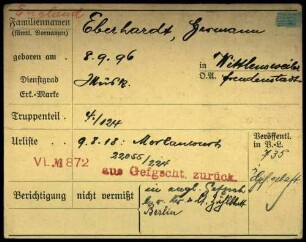 England
Familiennamen
(sämtl. Vornamen)
Eberhardt, Hermann
geboren am 8.9.96 in Wittlensweiler
O.A. Freudenstadt
Dienstgrad Musk.
Erk.-Marke
Truppenteil 4/124
Urliste 9.8.18: Morlancourt
22055/224
VI.M 872 aus Gefgscht. zurück.
Veröffentl. in V.L. 735
Berichtigung nicht vermißt
in engl. Gefgsch.
Berlin